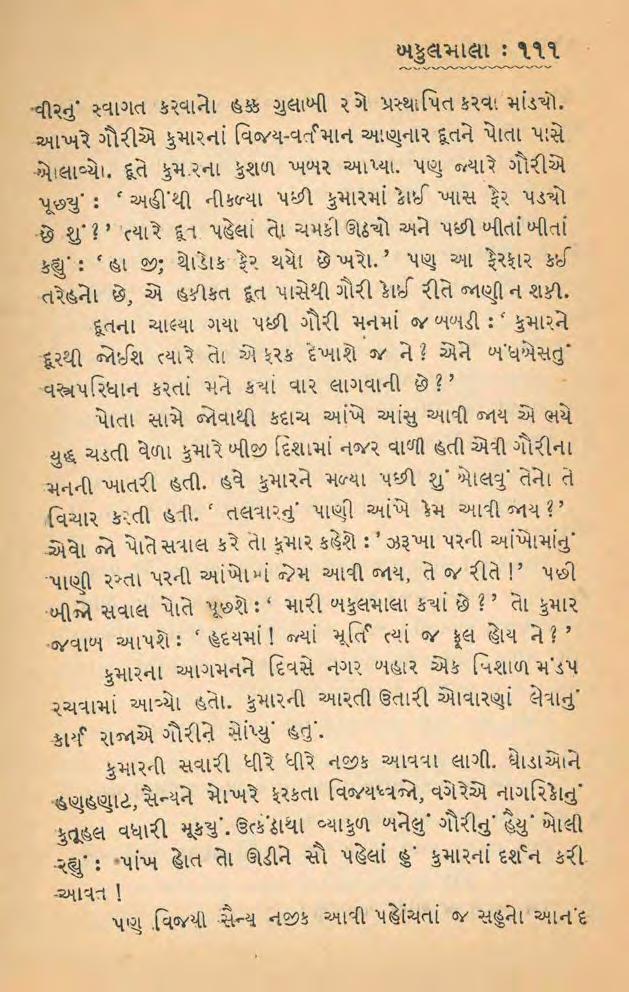 બકુલમાલા : ૧૧૧
વીરનું સ્વાગત કરવાનો હક્ક ગુલાબી રંગે પ્રસ્થાપિત કરવા માંડ્યો.
આખરે ગૌરીએ કુમારનાં વિજય-વર્તમાન આણનાર દૂતને પોતા પાસે
બોલાવ્યો. દૂતે કુમારના કુશળ ખબર આપ્યા. પણ જ્યારે ગૌરીએ
પૂછયું : ‘ અહીંથી નીકળ્યા પછી કુમારમાં કોઈ ખાસ ફેર પડ્યો
છે શું ? ’ ત્યારે દૂત પહેલાં તો ચમકી ઊઠ્યો અને પછી બીતાં બીતાં
કહ્યું : ‘ હા જી; થોડોક ફેર થયો છે ખરો. ’ પણ આ ફેરફાર કઈ
તરેહનો છે, એ હકીકત દૂત પાસેથી ગૌરી કોઈ રીતે જાણી ન શકી.
દૂતના ચાલ્યા ગયા પછી ગૌરી મનમાં જ બબડી : ‘ કુમારને
દૂરથી જોઈશ ત્યારે તો એ ફરક દેખાશે જ ને ? એને બંધબેસતું
વસ્ત્રપરિધાન કરતાં મને ક્યાં વાર લાગવાની છે ? ’
પોતા સામે જોવાથી કદાચ આંખે આંસુ આવી જાય એ ભયે
યુદ્ધ ચડતી વેળા કુમારે બીજી દિશામાં નજર વાળી હતી એવી ગૌરીના
મનની ખાતરી હતી. હવે કુમારને મળ્યા પછી શું બોલવું તેનો તે
વિચાર કરતી હતી. ‘ તલવારનું પાણી આંખે કેમ આવી જાય ? ’
એવો જો પોતે સવાલ કરે તો કુમાર કહેશે : ’ ઝરૂખા પરની આંખોમાંનું
પાણી રસ્તા પરની આંખોમાં જેમ આવી જાય, તે જ રીતે ! ’ પછી
બીજો સવાલ પોતે પૂછશે : ‘ મારી બકુલમાલા ક્યાં છે ? ’ તો કુમાર
જવાબ આપશે : ‘ હૃદયમાં ! જ્યાં મૂર્તિ ત્યાં જ ફૂલ હોય ને ? ’
કુમારના આગમનને દિવસે નગર બહાર એક વિશાળ મંડપ
રચવામાં આવ્યો હતો. કુમારની આરતી ઉતારી ઓવારણાં લેવાનું
કાર્ય રાજાએ ગૌરીને સોંપ્યું હતું.
કુમારની સવારી ધીરે ધીરે નજીક આવવા લાગી. ઘોડાઓને
હણહણાટ, સૈન્યને મોખરે ફરકતા વિજયધ્વજો, વગેરેએ નાગરિકોનું
કુતૂહલ વધારી મૂકયું. ઉત્કંઠાથા વ્યાકુળ બનેલું ગૌરીનું હૈયું બોલી
રહ્યું : ‘પાંખ હોત તો ઊડીને સૌ પહેલાં હું કુમારનાં દર્શન કરી
આવત !
પણ વિજયી સૈન્ય નજીક આવી પહોંચતાં જ સહુનો આનંદ